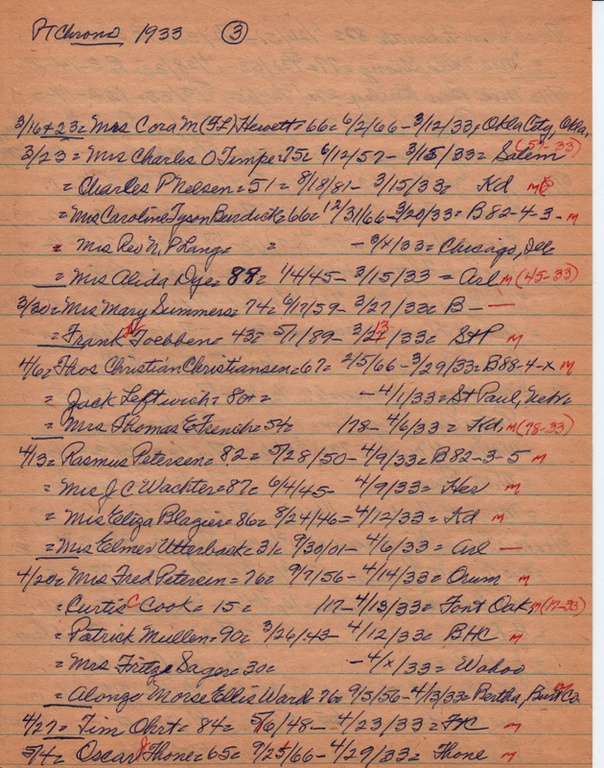 PT Chrono 1933 ③
3/16+23= Mrs Cora M (F L) Hewett= 66= 6/2/66-3/12/33, Okla City, Okla,
3/23= Mrs Charles O Timpe= 75= 6/12/57 - 3/15/33= Salem (57-33)
= Charles P Nelsen= 51= 8/18/81- 3/15/33= Kd m
= Mrs Caroline Tyson Burdick= 66= 12/31/66-3/20/33= B82-4-3- m
= Mrs Rev N P Lang= = -3/x/33= Chicago, Ill
= Mrs Alida Dye= 88= 1/4/45- 3/15/33 = Arl m (45-33)
3/30= Mrs Mary Summers= 74= 6/17/59- 3/27/33= B- —
= Frank Toebben= 43= 5/1/89- 3/23/33= StP m
4/6= Thos Christian Christiansen= 67= 2/5/66-3/29/33= B88-4-x m
= Jack Leftwich= 80+= -4/1/33= St Paul, Nebr.
= Mrs Thomas E French= 54= 178-4/6/33= Kd, m (78-33)
4/13= Rasmus Petersen= 82= 5/28/50-4/9/33= B 82-3-5 m
= Mrs J C Wachter= 87= 6/4/45- 4/9/33= Her m
= Mrs Eliza Blagier= 86= 8/24/46= 4/12/33= Kd m
= Mrs Elmer Utterback= 31= 9/30/01- 4/6/33= Arl —
4/20= Mrs Fred Petersen= 76= 9/7/56- 4/14/33= Orum m
= Curtis C Cook= 15= 117-4/13/33= Font Oak, m (17-33)
= Patrick Mullen= 90= 3/26/43- 4/12/33= BHC m
= Mrs Fritze Sager= 30= -4/x/33= Wahoo
= Alonzo Morse Ellis Ward= 76= 9/5/56-4/13/33= Bertha, Burt Co
4/27= Tim Ohrt= 84= 5/6/48- 4/23/33= FC m
5/4= Oscar J Thone= 65= 9/25/66-4/29/33= Thone m